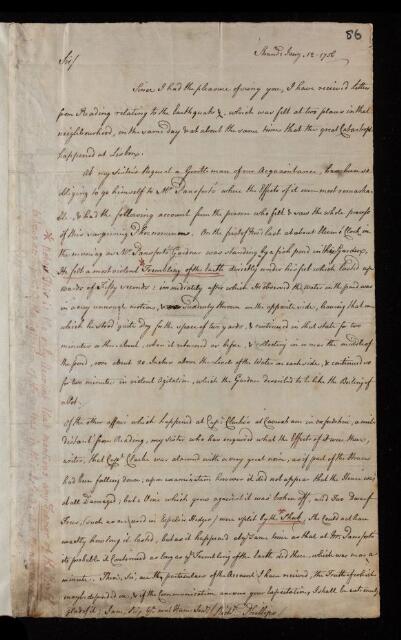 86
Strand Jany. 12. 1756
Sir/
Since I had the pleasure of seeing you, I have received Letters
from Reading relating to the Earthquake &c. which was felt at two places in that
neighbourhood, on the same day & at about the same time that the great Catastrophe
happened at Lisbon.
At my Sister's Request a Gentleman of our Acquaintance, has been so
obliging to go himself to Mr. Pansfort's where the Effects of it were most remarka-
ble, & had the following account from the person who felt & saw the whole process
of this surprising Phoenomenon. On the first of Novr. last at about Eleven o'Clock in
the morning as Mr. Pansforts Gardner was standing by a fish pond in the Garden,
He felt a most violent Trembling of the Earth directly under his feet which lasted up-
wards of Fifty seconds: immediately after which He observed the Water in the pond was
in a very unusual motion, & Suddenly thrown on the opposite side, leaving that on
which he stood quite dry for the space of two yards, & continued in that state for two
minutes or there about, when it returned as before, & collecting in or near the middle of
the pond, rose about 20 Inches above the Level of the Water on each side, & continued so
for two minutes in violent Agitation, which the Gardner described to be like the Boiling of
a Pot.
Of the other affair which happened at Capt. Clarke's at Caversham in Oxfordshire, a mile
distant from Reading, my sister who has enquired what the Effects of it were there,
writes, that Capt. Clarke was alarmed with a very great noise, as if part of the House
had been falling down; upon examination however it did not appear that the House was
at all Damaged; but a Vine which grew against it was broken off, and Two dwarf
Trees, (such as are used in Espalier Hedges) were split by the Shock; She could not learn
exactly how long it lasted, but as it happened at the same time as that at Mr. Pansforts
its probable it Continued as long as ye Trembling of the Earth did there, which was near a
minute. These, Sir, are the particulars of the Account I have received, the Truth of which
may be depended on, & if the Communication answers your Expectation, I shall be extremely
glad of it; I am, Sir, Yr. most Hum. Servt. Richd. Phillips